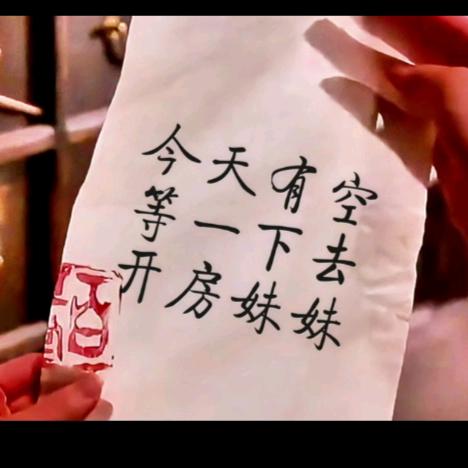 今天有空
等一下去
开房妹妹